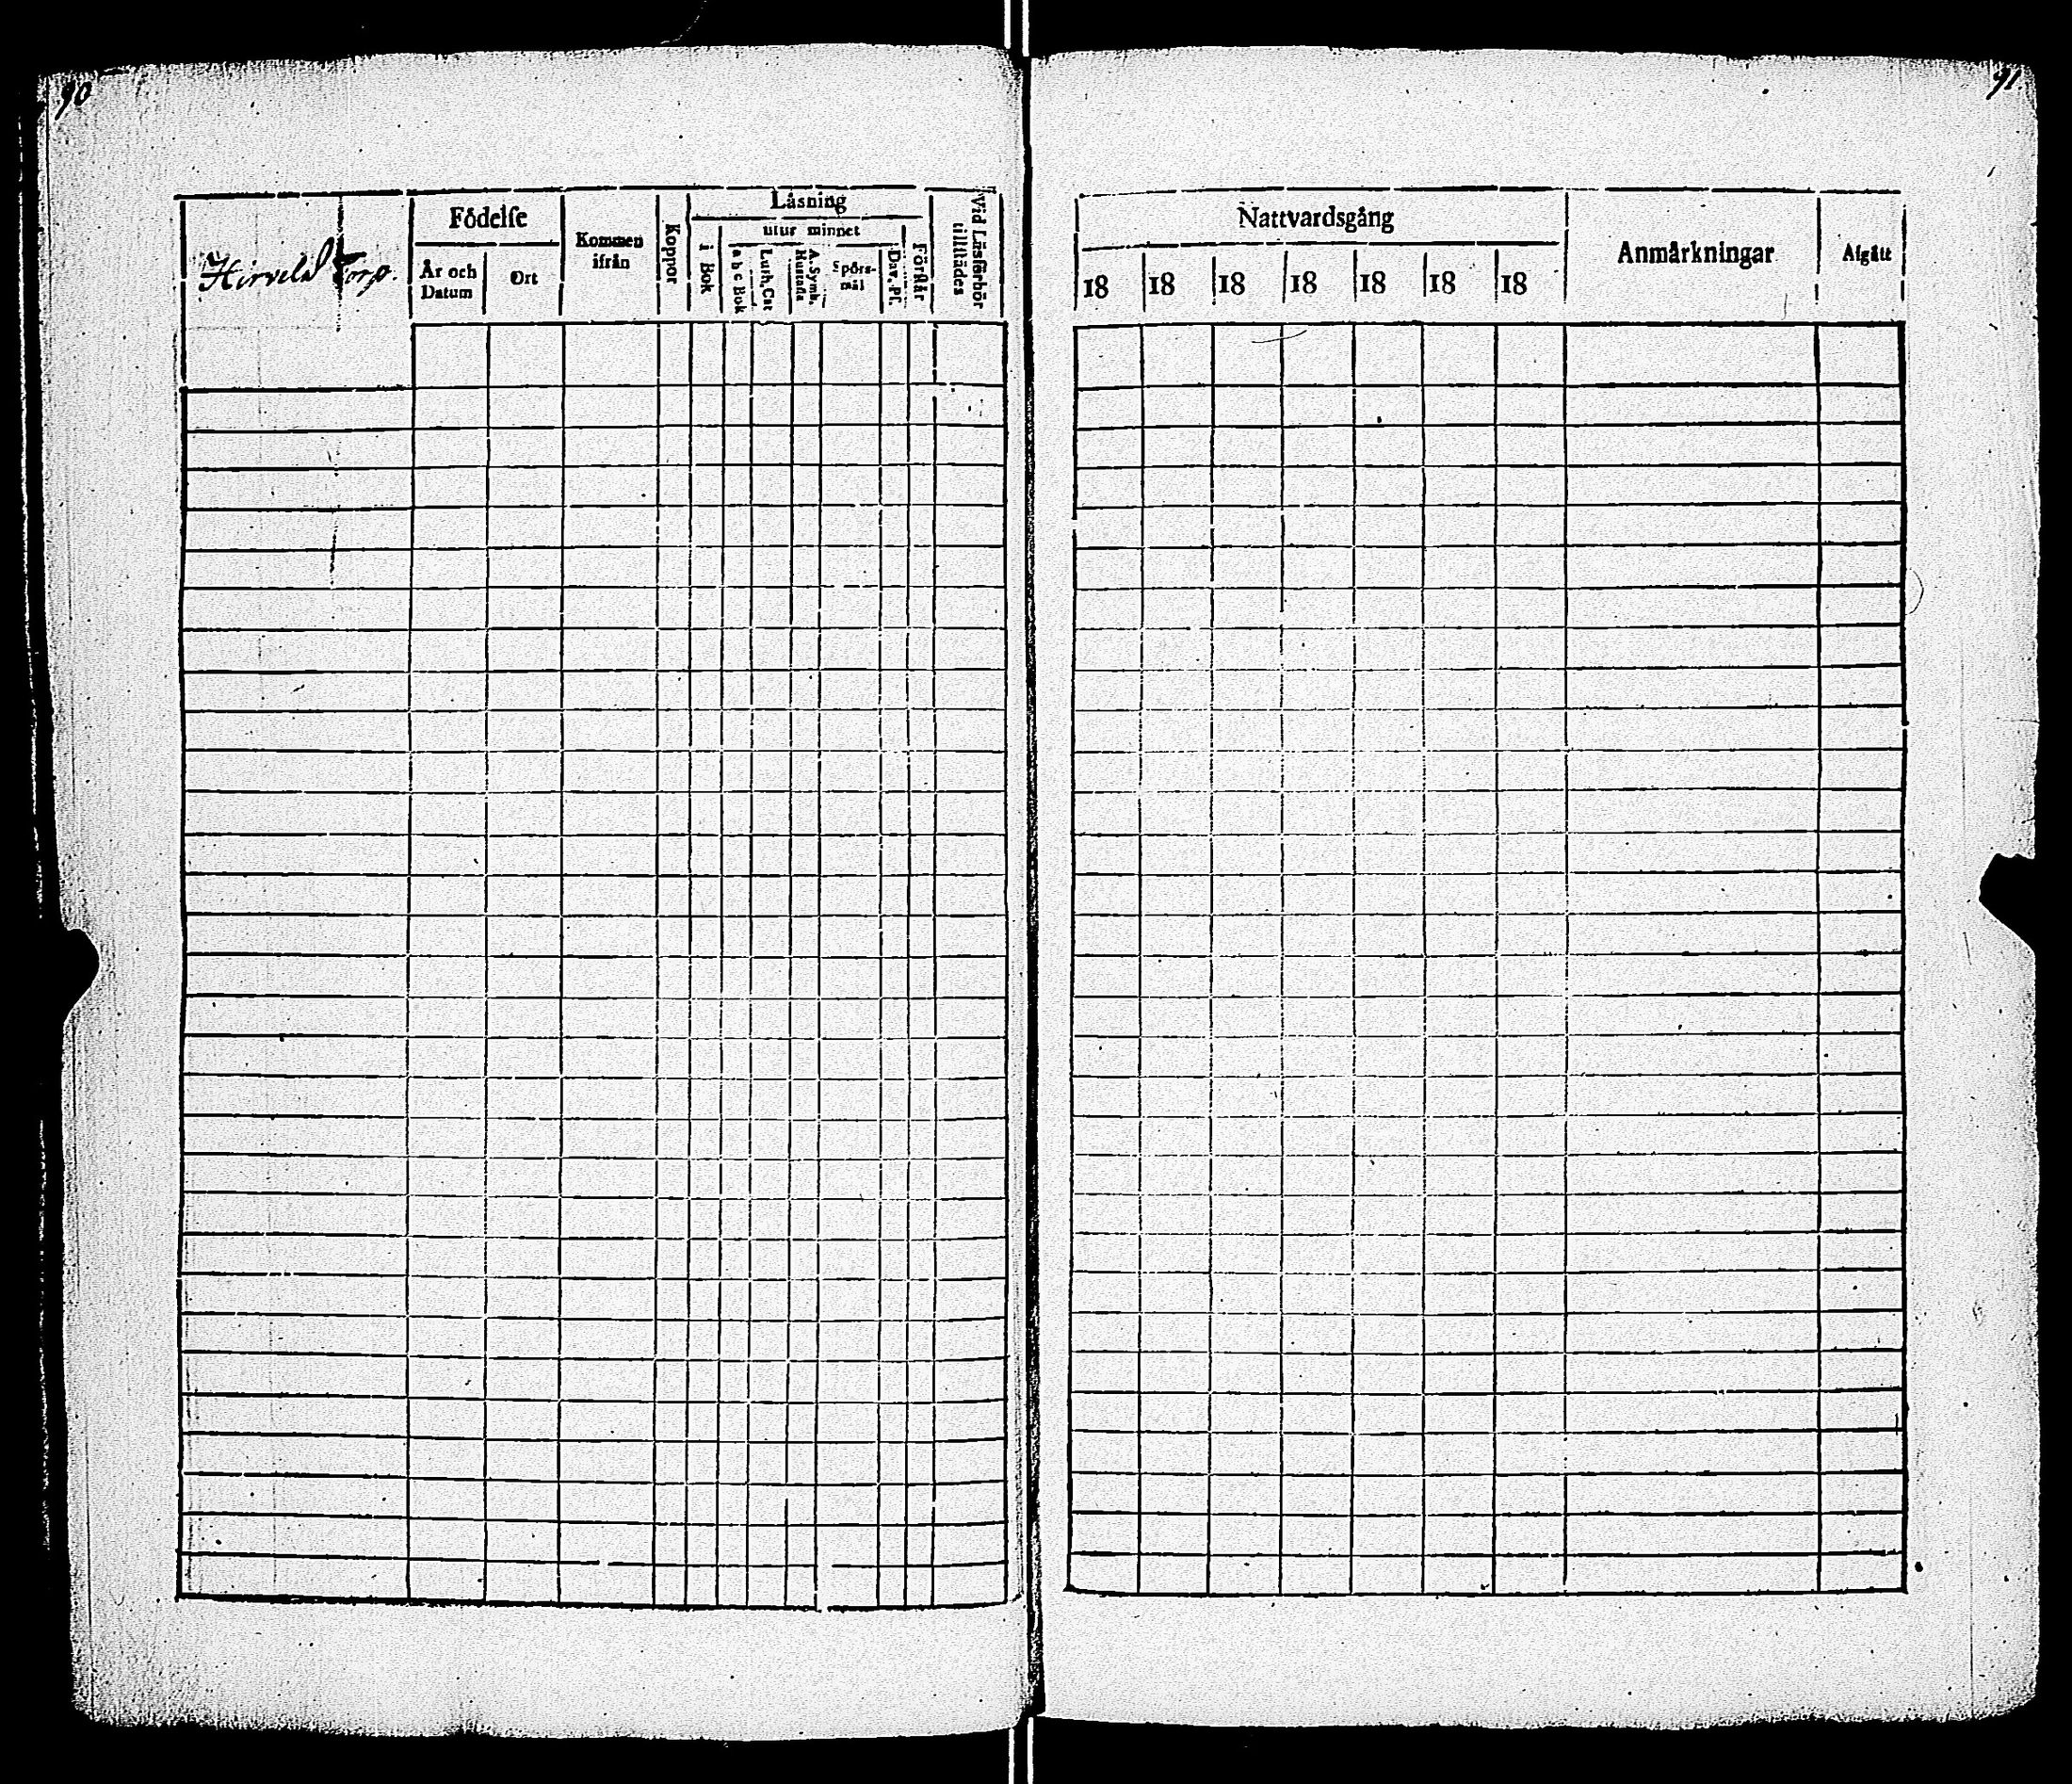 90
91
Hirvelä torp.
Födelse
År och Datum
Ort
Kommen ifrån
Koppor
Läsning
i Bok
utur minnet
a b c Bok
Luth. Cat
A. Symb. Hustafla
Spörsmål
Dav. Ps.
Förstår
Vid Läsförhör tillstädes
Nattvardsgång
18 18 18 18 18 18 18
Anmärkningar
Afgått